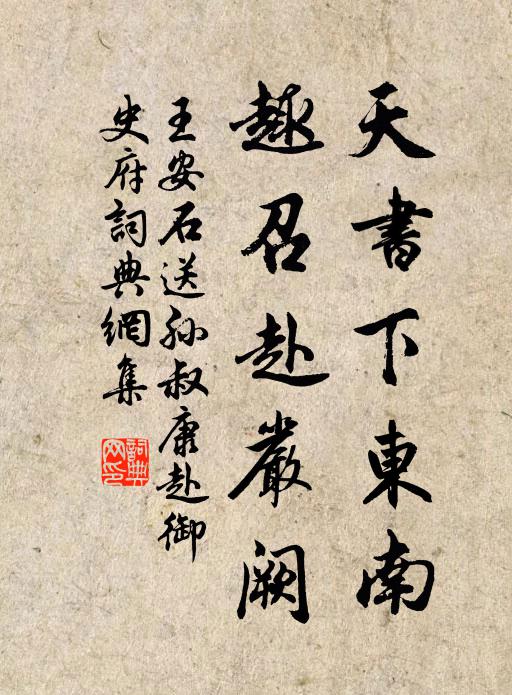 天書下東南
趣召赴嚴闕
王安石送孙叔康赴御
史府詞典網集
詞典網印